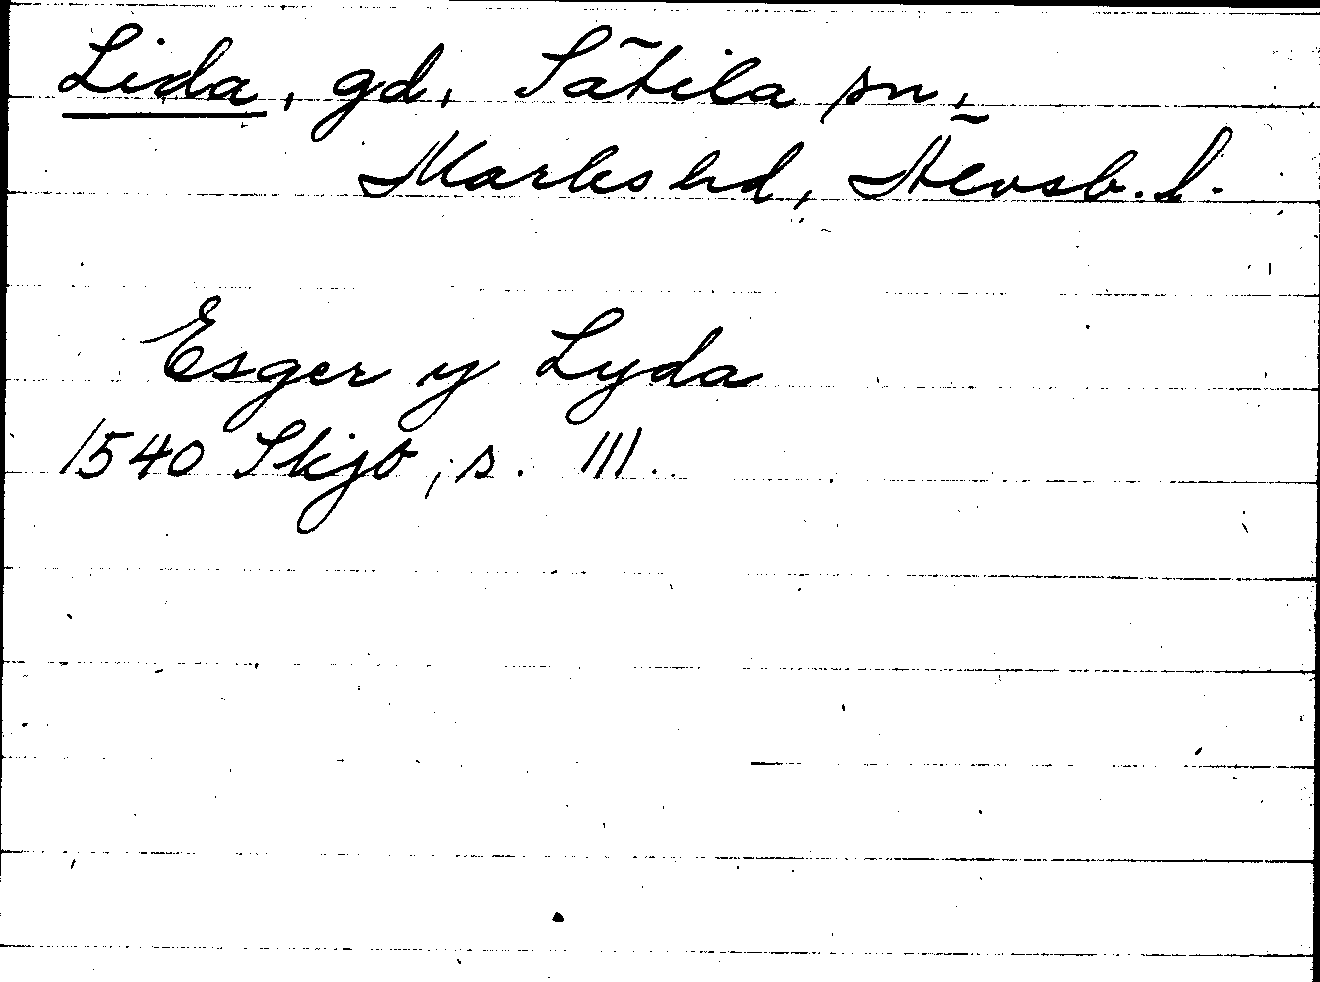 Lida, gd, Sätila sn,
Marks hd, Älvsb. l.
Esger y Lyda
1540 Skjb, s. 111.